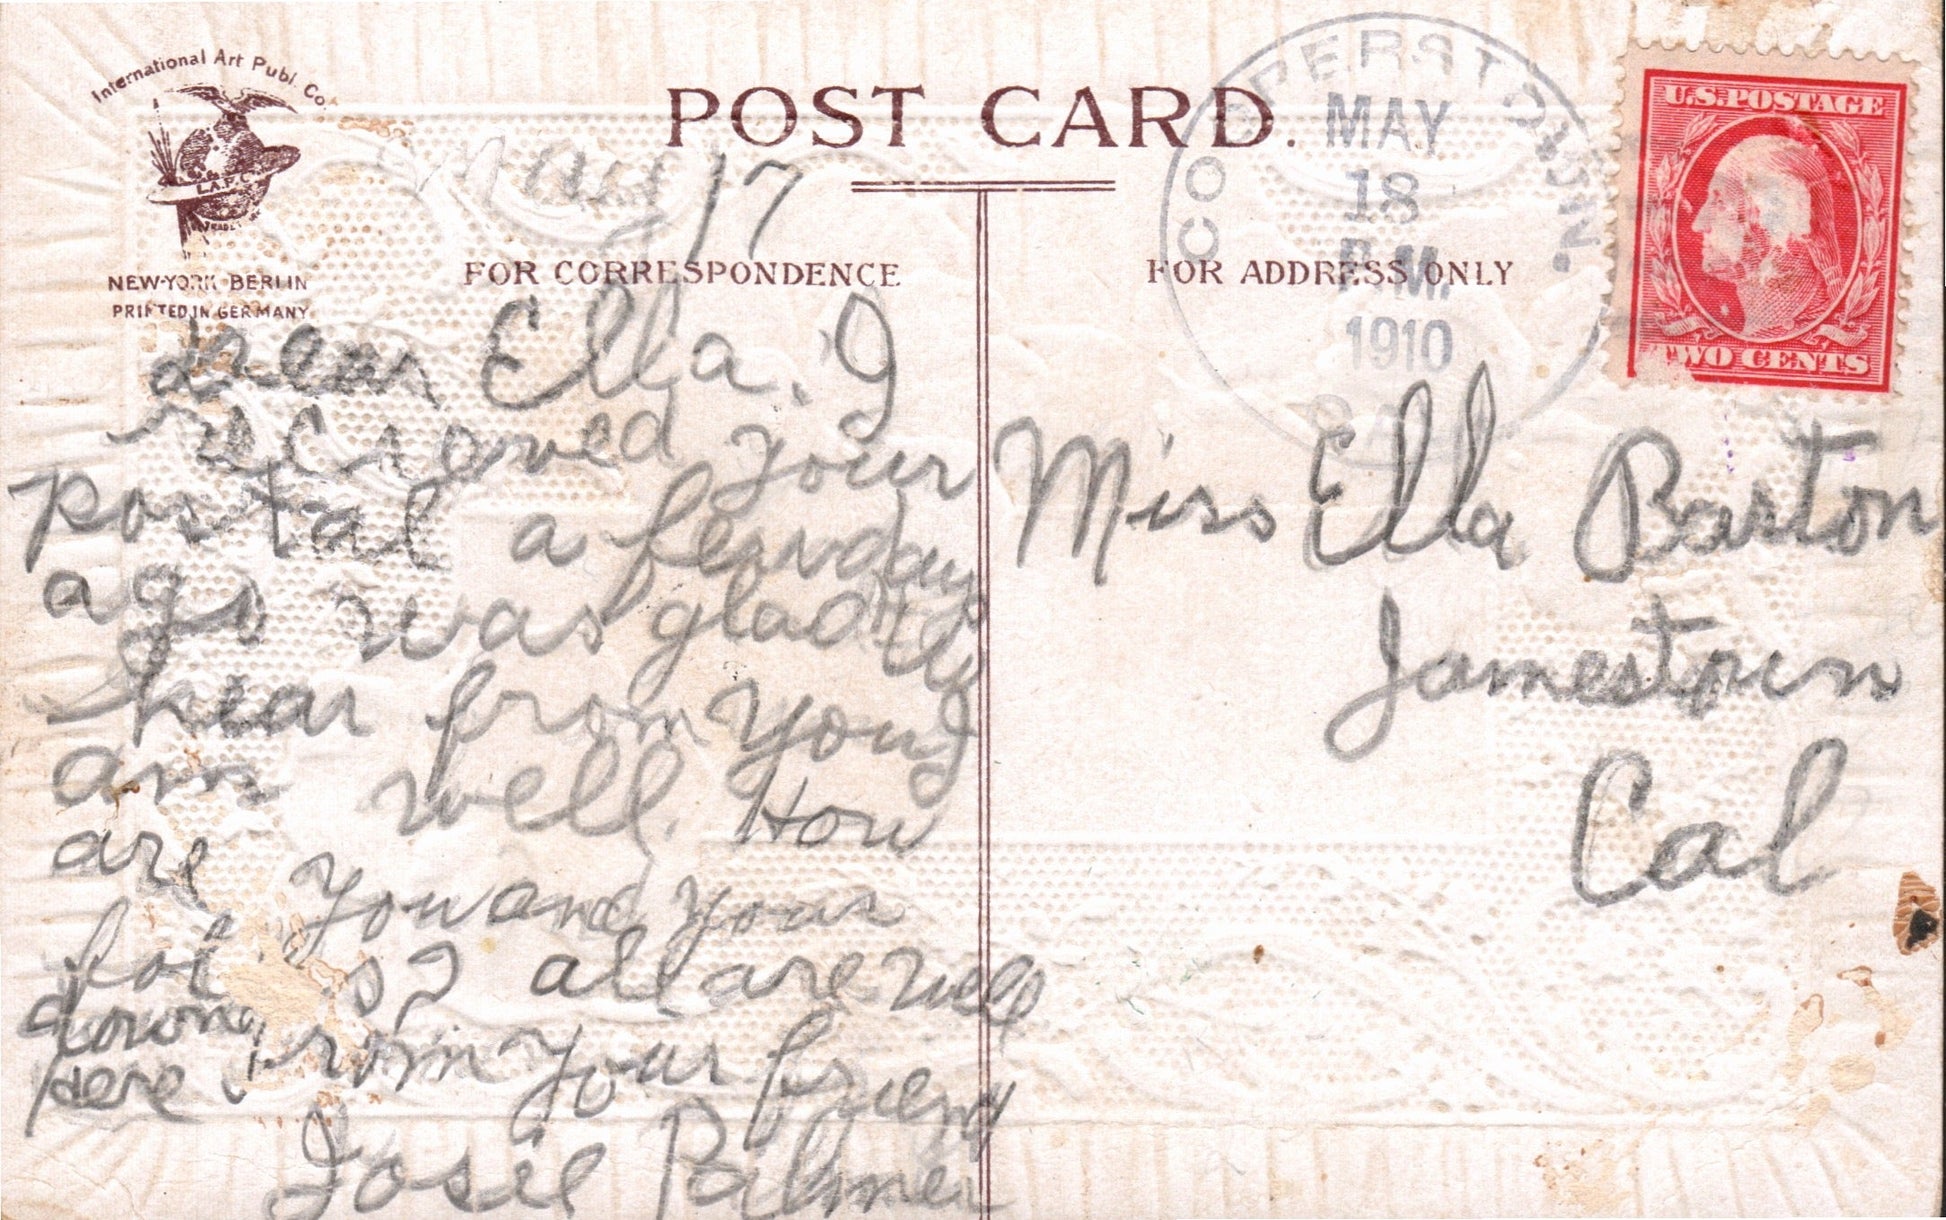 International Art Publ. Co.
I.A.P.C.
TRADE
NEW-YORK BERLIN
PRINTED IN GERMANY
POST CARD.
May 17
FOR CORRESPONDENCE
FOR ADDRESS ONLY
COOPERSTOWN.
MAY
18
P.M.
1910
CAL.
U.S. POSTAGE
TWO CENTS
dear Ella. I
recieved your
postal a few days
ago was glad to
hear from you I
am well. How
are you and your
folks? all are well
down here. From your friend
Josie Palmer
Miss Ella Barton
Jamestown
Cal